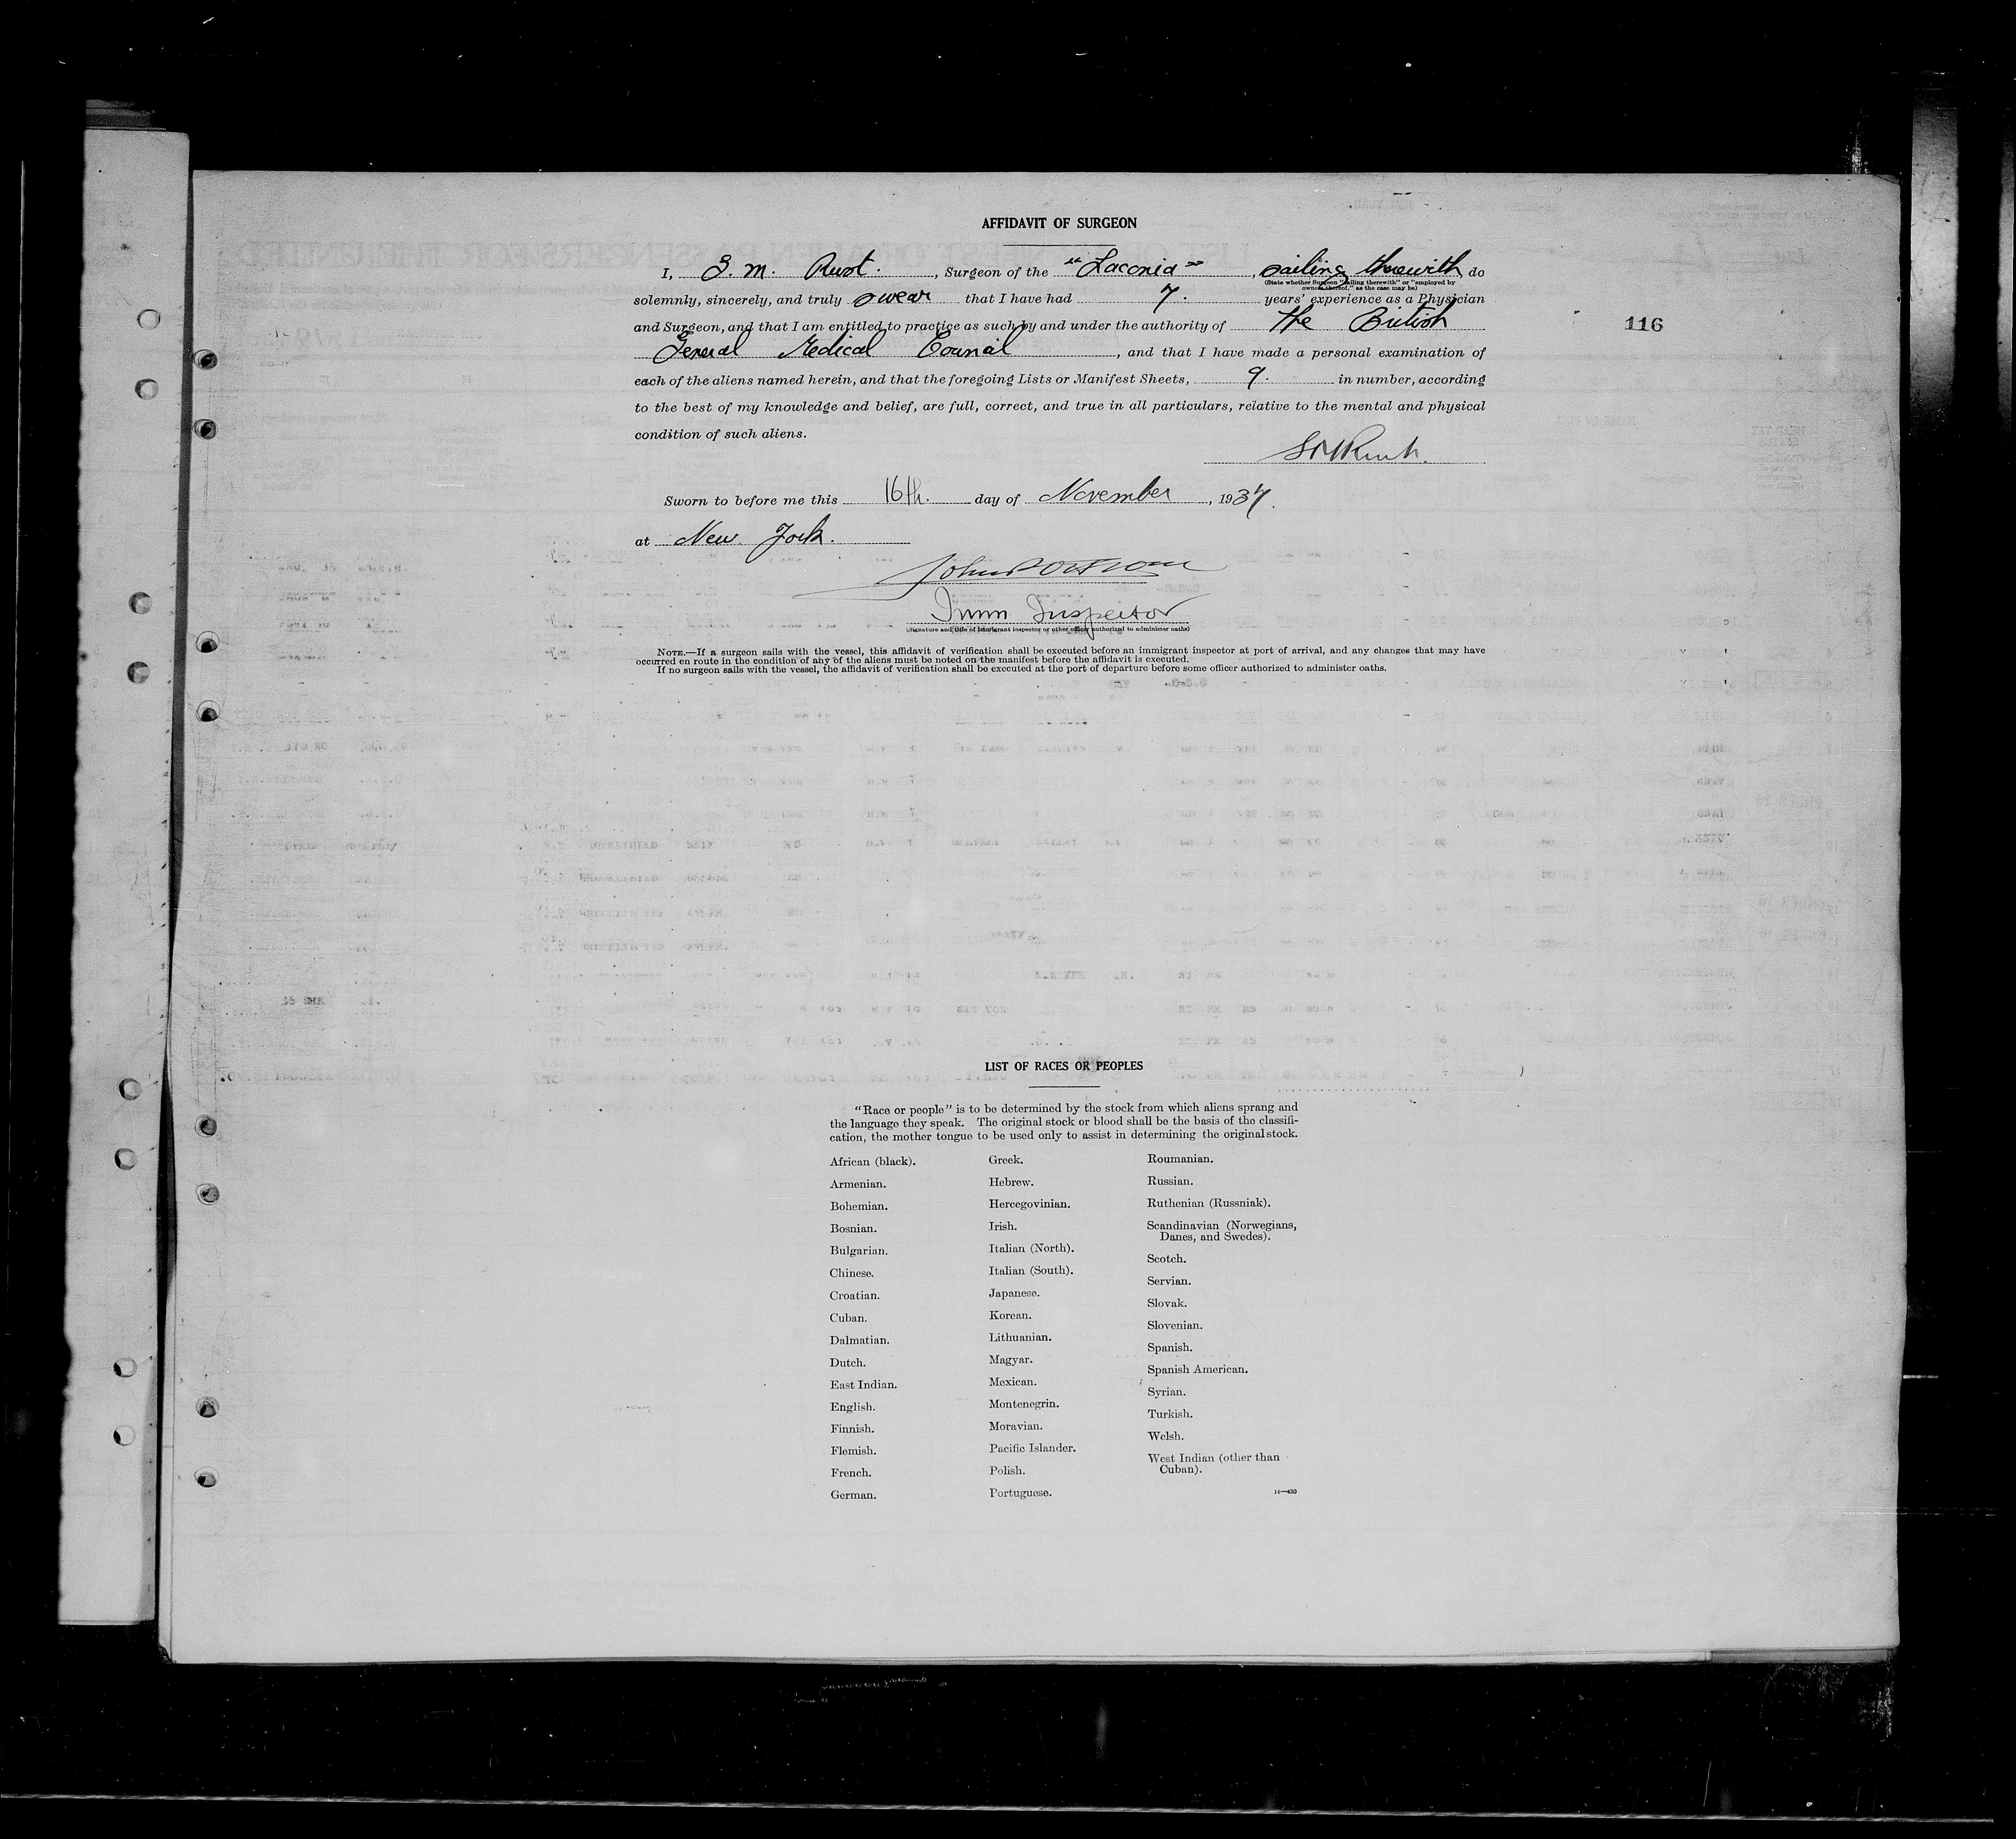 AFFIDAVIT OF SURGEON
I, S. M. Rust. , Surgeon of the "Laconia" , sailing therewith do
(State whether Surgeon "sailing therewith" or "employed by
owners thereof," as the case may be)
solemnly, sincerely, and truly swear that I have had 7. years' experience as a Physician
and Surgeon, and that I am entitled to practice as such by and under the authority of the British
116
General Medical Council , and that I have made a personal examination of
each of the aliens named herein, and that the foregoing Lists or Manifest Sheets, 9. in number, according
to the best of my knowledge and belief, are full, correct, and true in all particulars, relative to the mental and physical
condition of such aliens.
Sworn to before me this 16th. day of November , 1937.
at New York.
Imm Inspector
(Signature and title of immigrant inspector or other officer authorized to administer oaths)
NOTE.—If a surgeon sails with the vessel, this affidavit of verification shall be executed before an immigrant inspector at port of arrival, and any changes that may have
occurred en route in the condition of any of the aliens must be noted on the manifest before the affidavit is executed.
If no surgeon sails with the vessel, the affidavit of verification shall be executed at the port of departure before some officer authorized to administer oaths.
LIST OF RACES OR PEOPLES
"Race or people" is to be determined by the stock from which aliens sprang and
the language they speak. The original stock or blood shall be the basis of the classifi-
cation, the mother tongue to be used only to assist in determining the original stock.
African (black).
Armenian.
Bohemian.
Bosnian.
Bulgarian.
Chinese.
Croatian.
Cuban.
Dalmatian.
Dutch.
East Indian.
English.
Finnish.
Flemish.
French.
German.
Greek.
Hebrew.
Hercegovinian.
Irish.
Italian (North).
Italian (South).
Japanese.
Korean.
Lithuanian.
Magyar.
Mexican.
Montenegrin.
Moravian.
Pacific Islander.
Polish.
Portuguese.
Roumanian.
Russian.
Ruthenian (Russniak).
Scandinavian (Norwegians,
Danes, and Swedes).
Scotch.
Servian.
Slovak.
Slovenian.
Spanish.
Spanish American.
Syrian.
Turkish.
Welsh.
West Indian (other than
Cuban).
14—430